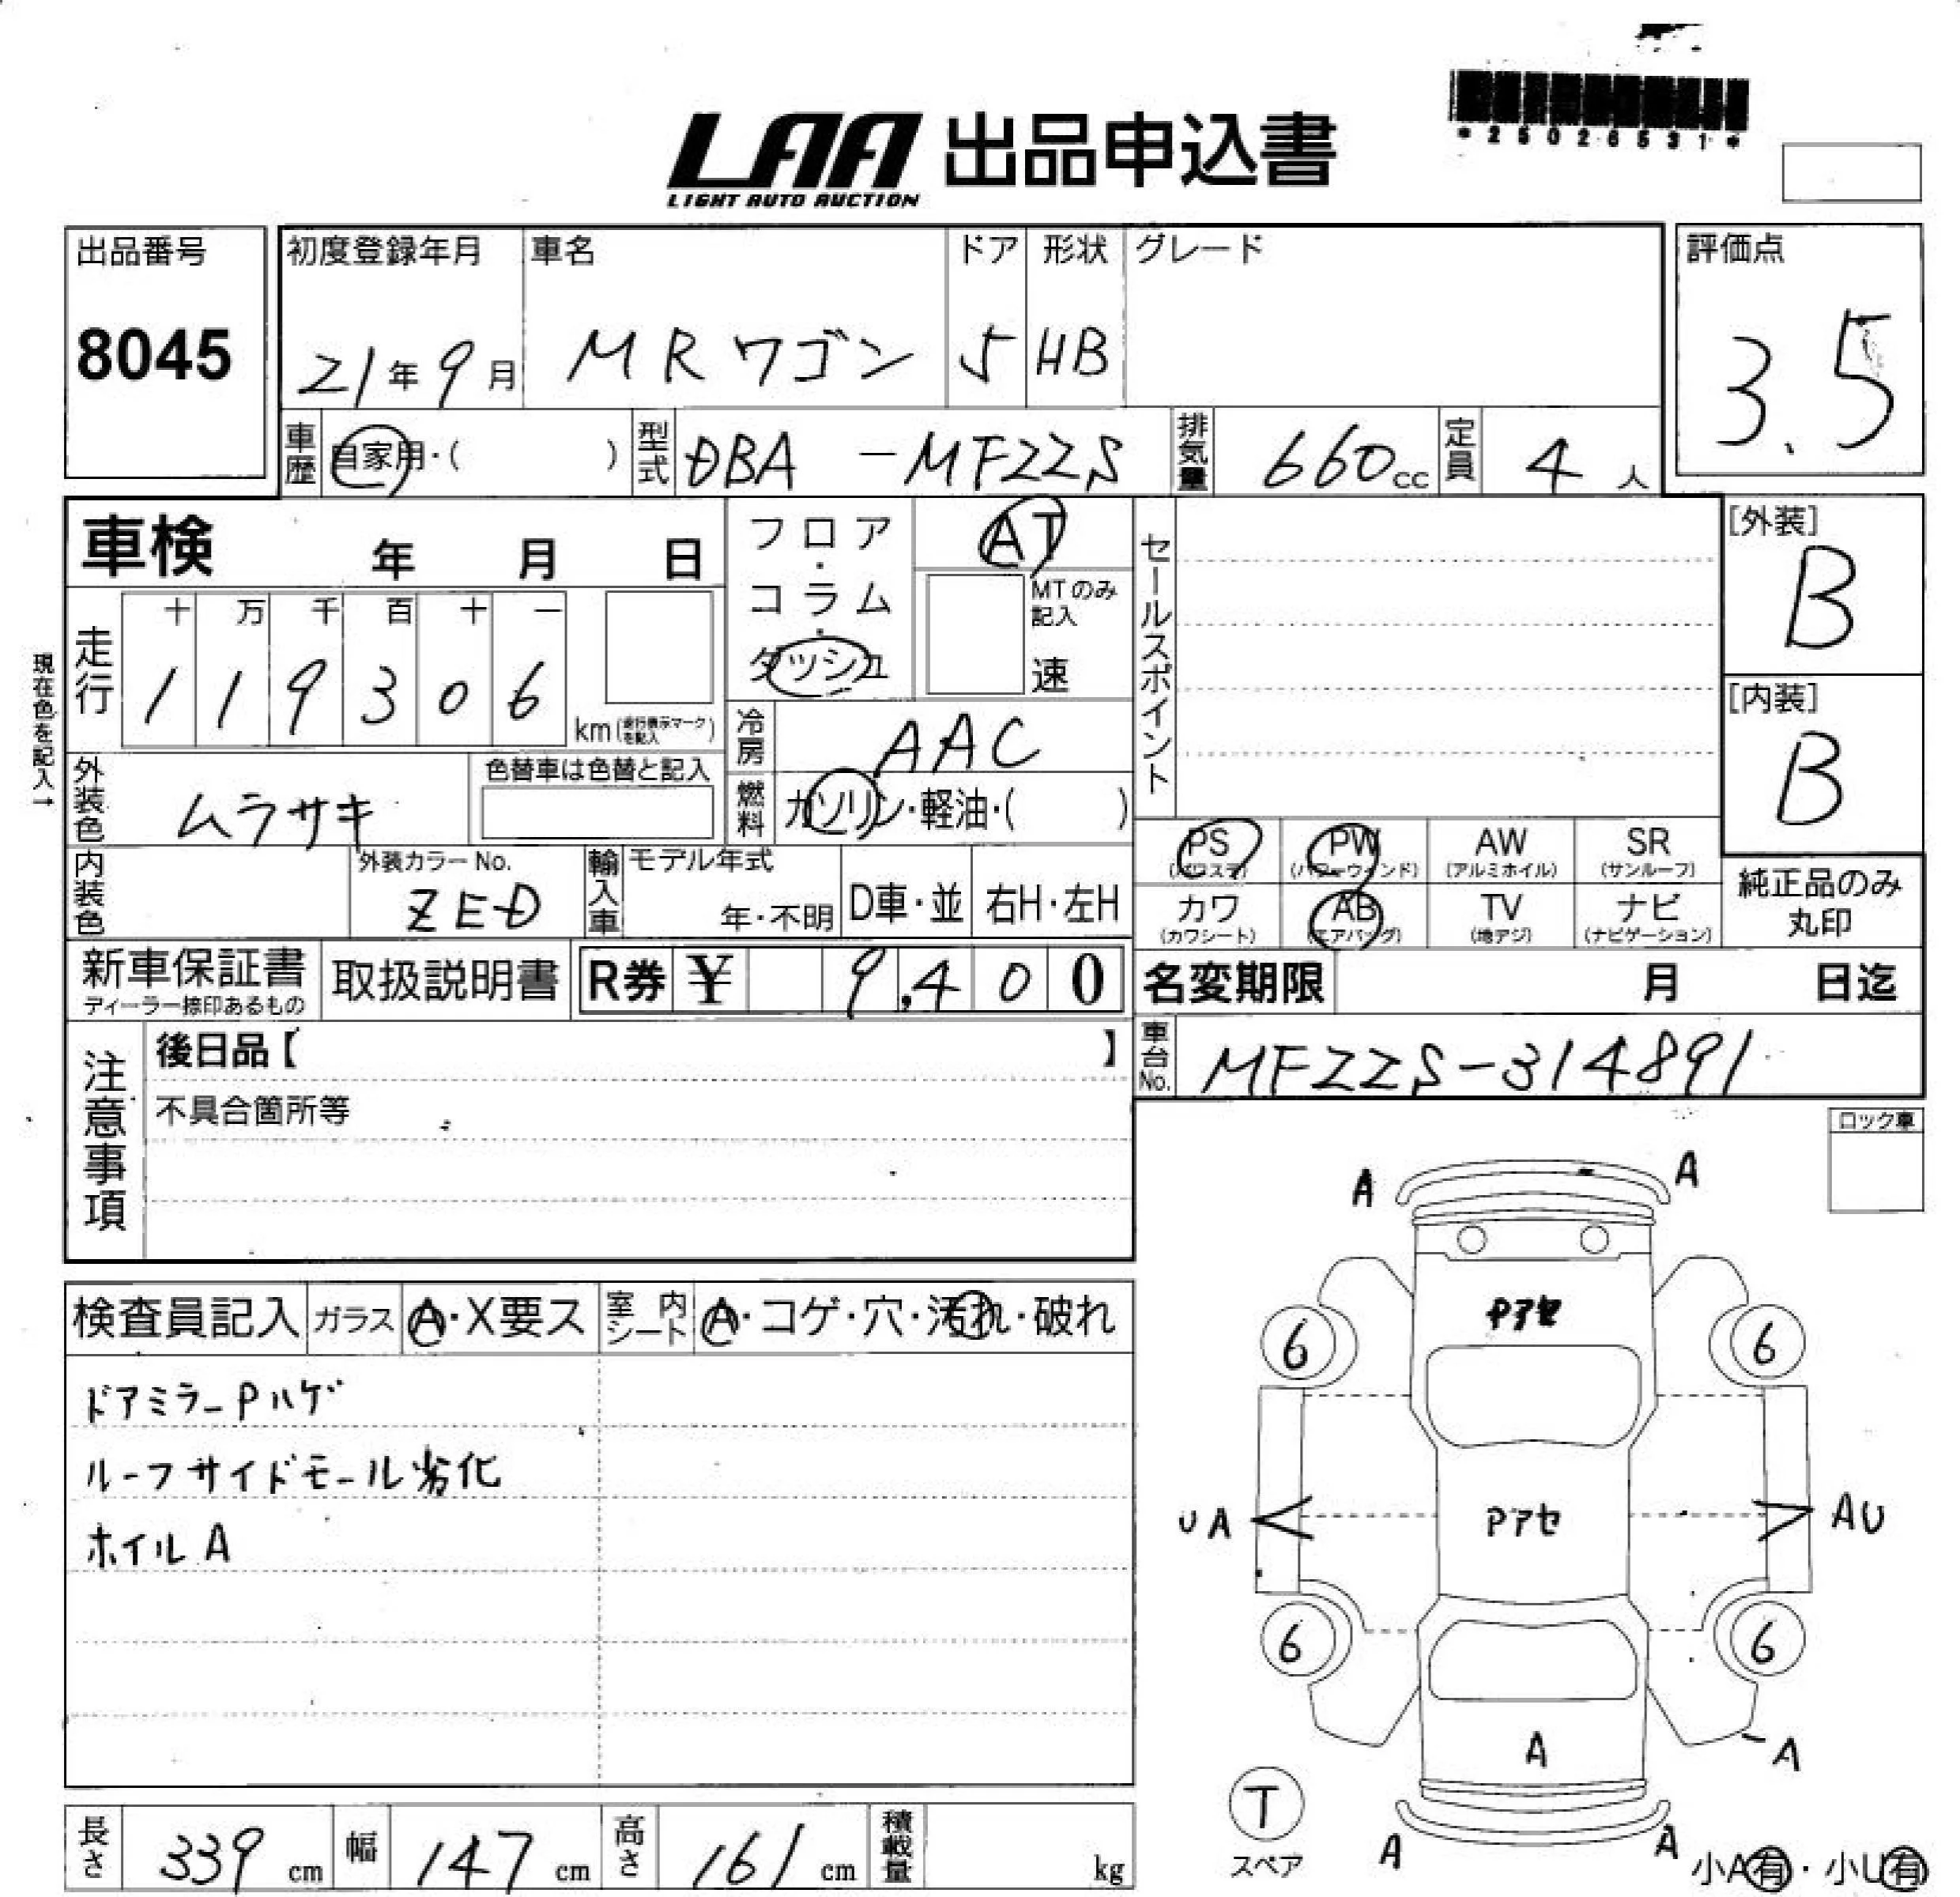 *25026531*
LAA 出品申込書
LIGHT AUTO AUCTION
出品番号
8045
初度登録年月
21年9月
車名
MRワゴン
ドア
5
形状
HB
グレード
評価点
3.5
車歴
自家用・( )
型式
DBA-MF22S
排気量
660cc
定員
4人
車検 年 月 日
フロア・コラム・ダッシュ
AT
MTのみ記入
速
セールスポイント
[外装]
B
[内装]
B
現在色を記入→
走行
十 万 千 百 十 一
1 1 9 3 0 6
km(走行表示マークを記入)
冷房
AAC
外装色
ムラサキ
色替車は色替と記入
燃料
ガソリン・軽油・( )
PS
(パワステ)
PW
(パワーウィンド)
AW
(アルミホイル)
SR
(サンルーフ)
カワ
(カワシート)
AB
(エアバッグ)
TV
(地デジ)
ナビ
(ナビゲーション)
純正品のみ
丸印
内装色
外装カラーNo.
ZED
輸入車
モデル年式
年・不明
D車・並
右H・左H
新車保証書
ディーラー捺印あるもの
取扱説明書
R券 ¥ 9,400
名変期限 月 日迄
注意事項
後日品【 】
不具合箇所等
車台No.
MF22S-314891
ロック車
A A
検査員記入
ガラス
A・X要ス
室内シート
A・コゲ・穴・汚れ・破れ
ドアミラーPハゲ
ルーフサイドモール劣化
ホイルA
Pアセ
6 6
UA
Pアセ
AU
6 6
A
A
T
スペア
A A
小A有・小U有
長さ
339cm
幅
147cm
高さ
161cm
積載量
kg